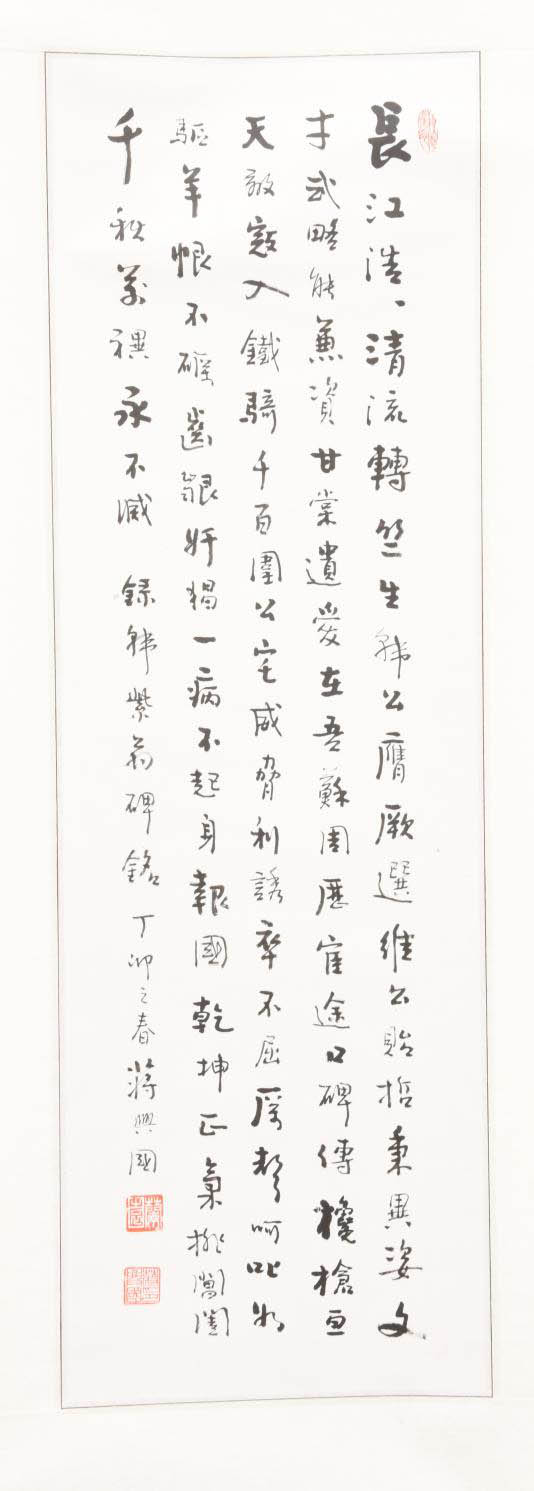 長江浩、清流轉笃生韩公膺厥選維公貽哲秉異姿文
才武略能兼資甘棠遺愛在吾蘇周歷宦途口碑傳欃槍亘
天敵寇入鐵騎千百圍公宅威脅利誘卒不屈厲聲呵叱如
驅羊恨不礫齒齦奸猲一病不起身報國乾坤正氣排閶闔
千秋萬禩永不滅 錄韩紫翁碑銘 丁卯之春 蔣興國